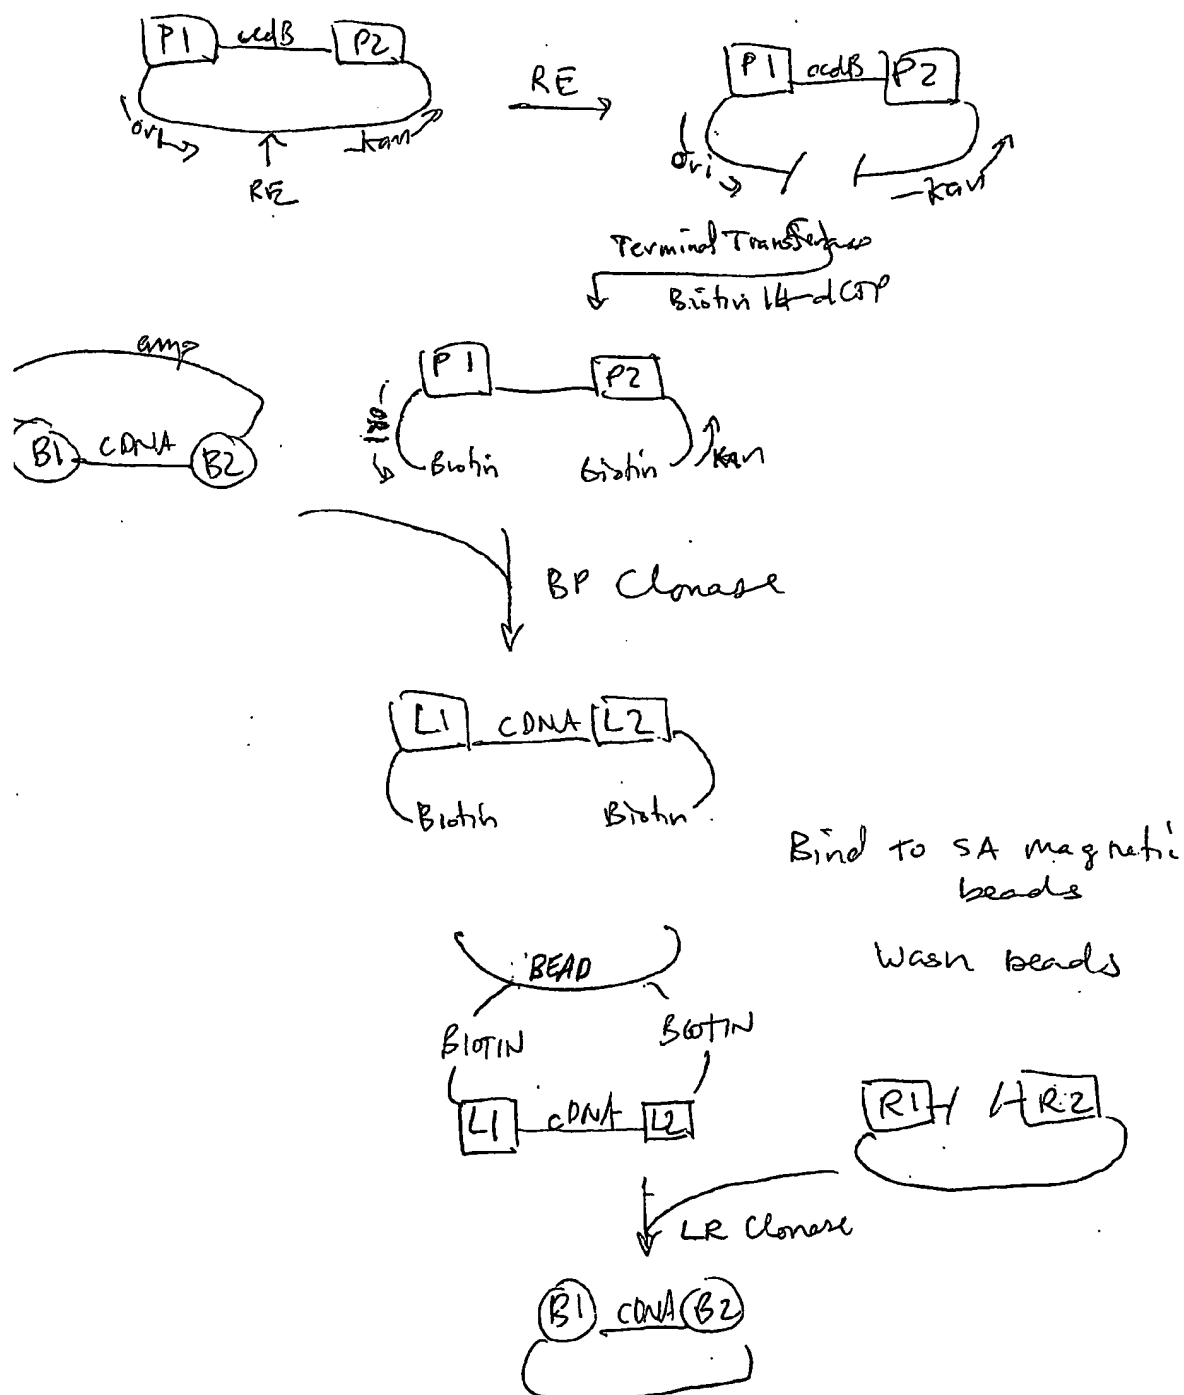 P1 ccdB P2
RE
P1 ccdB P2
ori kan
RE
ori kan
Terminal Transferase
Biotin 14-dCTP
amp
P1 P2
B1 cDNA B2
ORI
Biotin Biotin Kan
BP Clonase
L1 cDNA L2
Biotin Biotin
Bind to SA magnetic
beads
BEAD
Wash beads
BIOTIN BIOTIN
R1 R2
L1 cDNA L2
LR Clonase
B1 cDNA B2